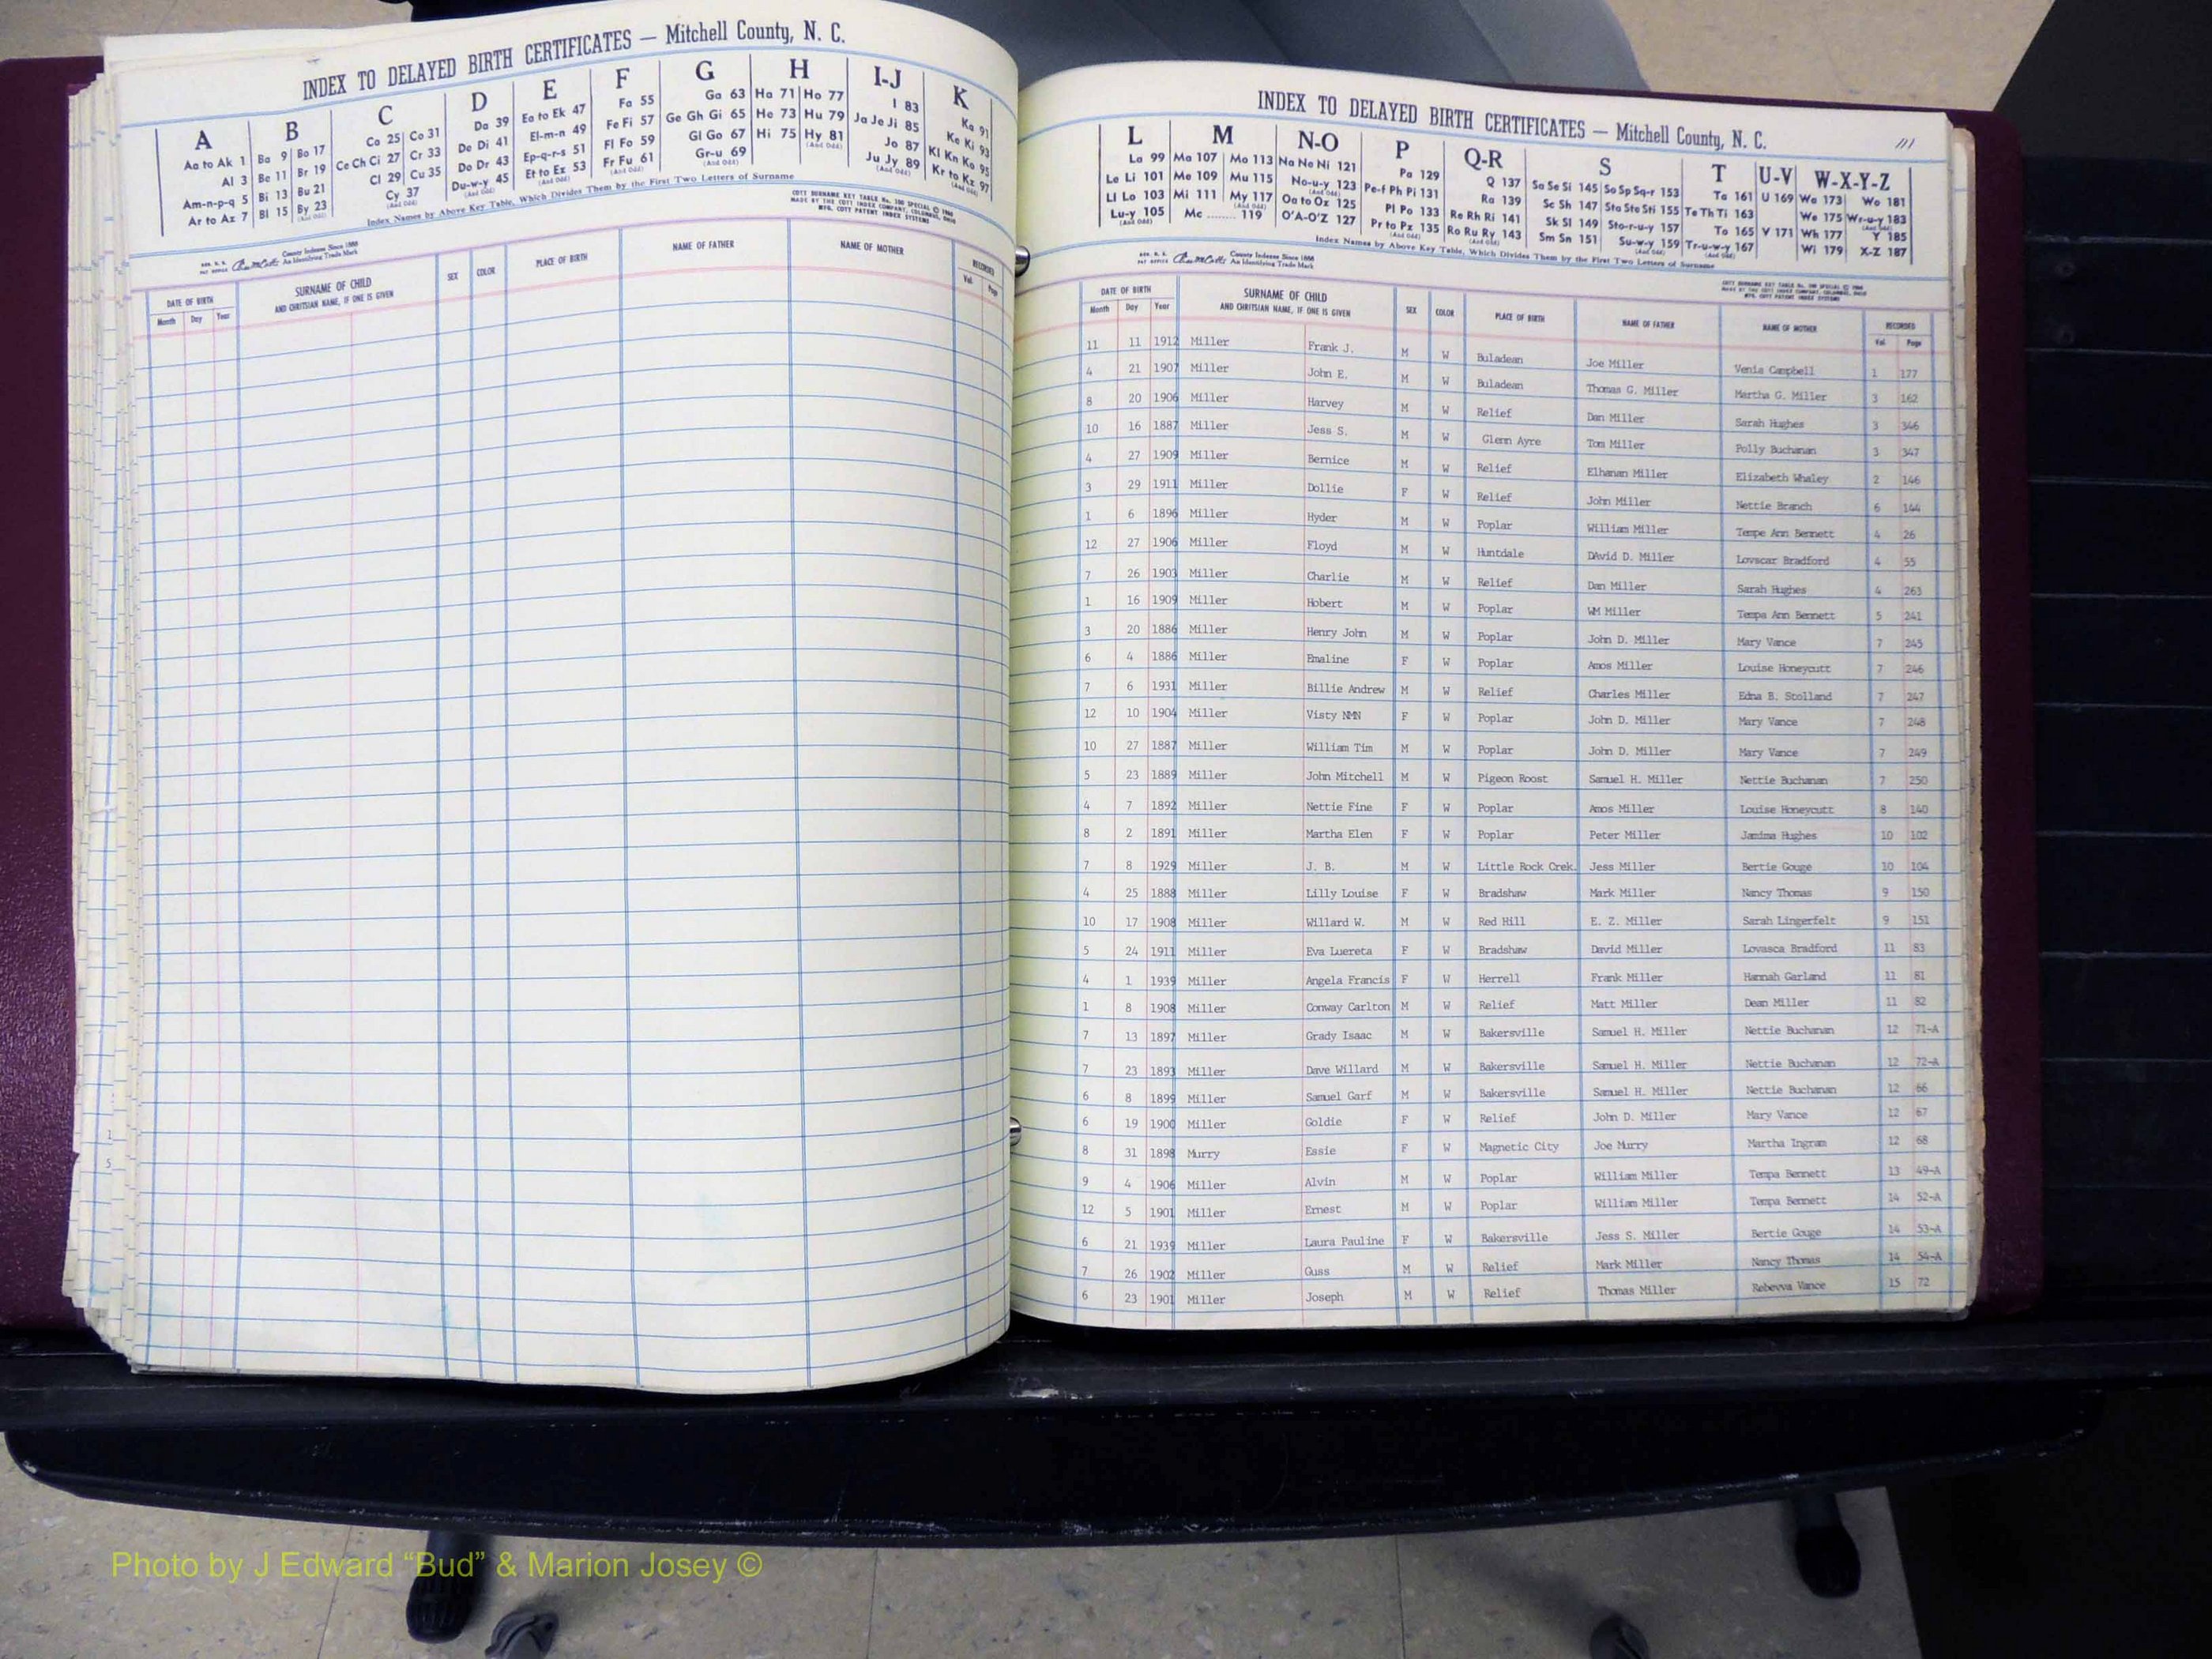 INDEX TO DELAYED BIRTH CERTIFICATES — Mitchell County, N. C.
A B C D E F G H I-J K
Aa to Ak 1 Ba 9 Bo 17 Ca 25 Co 31 Da 39 Ea to Ek 47 Fa 55 Ga 63 Ha 71 Ho 77 I 83 Ka 91
Al 3 Be 11 Br 19 Ce Ch Ci 27 Cr 33 De Di 41 El-m-n 49 Fe Fi 57 Ge Gh Gi 65 He 73 Hu 79 Ja Je Ji 85 Ke Ki 93
Am-n-p-q 5 Bi 13 Bu 21 Cl 29 Cu 35 Do Dr 43 Ep-q-r-s 51 Fl Fo 59 Gl Go 67 Hi 75 Hy 81 (And Odd) Jo 87 Kl Kn Ko 95
Ar to Az 7 Bl 15 By 23 (And Odd) Cy 37 (And Odd) Du-w-y 45 (And Odd) Et to Ez 53 (And Odd) Fr Fu 61 (And Odd) Gr-u 69 (And Odd) Ju Jy 89 (And Odd) Kr to Kz 97 (And Odd)
Index Names by Above Key Table, Which Divides Them by the First Two Letters of Surname
County Indexes Since 1888
An Identifying Trade Mark
COTT SURNAME KEY TABLE No. 100 SPECIAL © 1960
MADE BY THE COTT INDEX COMPANY, COLUMBUS, OHIO
MFG. COTT PATENT INDEX SYSTEMS
DATE OF BIRTH SURNAME OF CHILD AND CHRITSIAN NAME, IF ONE IS GIVEN SEX COLOR PLACE OF BIRTH NAME OF FATHER NAME OF MOTHER RECORDED
Month Day Year Vol. Page
INDEX TO DELAYED BIRTH CERTIFICATES — Mitchell County, N. C. 111
L M N-O P Q-R S T U-V W-X-Y-Z
La 99 Ma 107 Mo 113 Na Ne Ni 121 Pa 129 Q 137 Sa Se Si 145 So Sp Sq-r 153 Ta 161 U 169 Wa 173 Wo 181
Le Li 101 Me 109 Mu 115 No-u-y 123 (And Odd) Pe-f Ph Pi 131 Ra 139 Sc Sh 147 Sta Ste Sti 155 Te Th Ti 163 We 175 Wr-u-y 183 (And Odd)
Ll Lo 103 Mi 111 My 117 (And Odd) Oa to Oz 125 Pl Po 133 Re Rh Ri 141 Sk Sl 149 Sto-r-u-y 157 To 165 V 171 Wh 177 Y 185
Lu-y 105 (And Odd) Mc 119 O'A-O'Z 127 Pr to Pz 135 (And Odd) Ro Ru Ry 143 (And Odd) Sm Sn 151 Su-w-y 159 (And Odd) Tr-u-w-y 167 (And Odd) Wi 179 X-Z 187
Index Names by Above Key Table, Which Divides Them by the First Two Letters of Surname
County Indexes Since 1888
An Identifying Trade Mark
COTT SURNAME KEY TABLE No. 100 SPECIAL © 1960
MADE BY THE COTT INDEX COMPANY, COLUMBUS, OHIO
MFG. COTT PATENT INDEX SYSTEMS
DATE OF BIRTH SURNAME OF CHILD AND CHRITSIAN NAME, IF ONE IS GIVEN SEX COLOR PLACE OF BIRTH NAME OF FATHER NAME OF MOTHER RECORDED
Month Day Year Vol. Page
11 11 1912 Miller Frank J. M W Buladean Joe Miller Venia Campbell 1 177
4 21 1907 Miller John E. M W Buladean Thomas G. Miller Martha G. Miller 3 162
8 20 1906 Miller Harvey M W Relief Dan Miller Sarah Hughes 3 346
10 16 1887 Miller Jess S. M W Glenn Ayre Tom Miller Polly Buchanan 3 347
4 27 1909 Miller Bernice M W Relief Elhanan Miller Elizabeth Whaley 2 146
3 29 1911 Miller Dollie F W Relief John Miller Nettie Branch 6 144
1 6 1896 Miller Hyder M W Poplar William Miller Tempe Ann Bennett 4 26
12 27 1906 Miller Floyd M W Huntdale DAvid D. Miller Lovscar Bradford 4 55
7 26 1903 Miller Charlie M W Relief Dan Miller Sarah Hughes 4 263
1 16 1909 Miller Hobert M W Poplar WM Miller Tempa Ann Bennett 5 241
3 20 1886 Miller Henry John M W Poplar John D. Miller Mary Vance 7 245
6 4 1886 Miller Emaline F W Poplar Amos Miller Louise Honeycutt 7 246
7 6 1931 Miller Billie Andrew M W Relief Charles Miller Edna B. Stolland 7 247
12 10 1904 Miller Visty NMN F W Poplar John D. Miller Mary Vance 7 248
10 27 1887 Miller William Tim M W Poplar John D. Miller Mary Vance 7 249
5 23 1889 Miller John Mitchell M W Pigeon Roost Samuel H. Miller Nettie Buchanan 7 250
4 7 1892 Miller Nettie Fine F W Poplar Amos Miller Louise Honeycutt 8 140
8 2 1891 Miller Martha Elen F W Poplar Peter Miller Jamima Hughes 10 102
7 8 1929 Miller J. B. M W Little Rock Crek. Jess Miller Bertie Gouge 10 104
4 25 1888 Miller Lilly Louise F W Bradshaw Mark Miller Nancy Thomas 9 150
10 17 1908 Miller Willard W. M W Red Hill E. Z. Miller Sarah Lingerfelt 9 151
5 24 1911 Miller Eva Luereta F W Bradshaw David Miller Lovasca Bradford 11 83
4 1 1939 Miller Angela Francis F W Herrell Frank Miller Hannah Garland 11 81
1 8 1908 Miller Conway Carlton M W Relief Matt Miller Dean Miller 11 82
7 13 1897 Miller Grady Isaac M W Bakersville Samuel H. Miller Nettie Buchanan 12 71-A
7 23 1893 Miller Dave Willard M W Bakersville Samuel H. Miller Nettie Buchanan 12 72-A
6 8 1899 Miller Samuel Garf M W Bakersville Samuel H. Miller Nettie Buchanan 12 66
6 19 1900 Miller Goldie F W Relief John D. Miller Mary Vance 12 67
8 31 1898 Murry Essie F W Magnetic City Joe Murry Martha Ingram 12 68
9 4 1906 Miller Alvin M W Poplar William Miller Tempa Bennett 13 49-A
12 5 1901 Miller Ernest M W Poplar William Miller Tempa Bennett 14 52-A
6 21 1939 Miller Laura Pauline F W Bakersville Jess S. Miller Bertie Gouge 14 53-A
7 26 1902 Miller Guss M W Relief Mark Miller Nancy Thomas 14 54-A
6 23 1901 Miller Joseph M W Relief Thomas Miller Rebevva Vance 15 72
Photo by J Edward “Bud” & Marion Josey ©